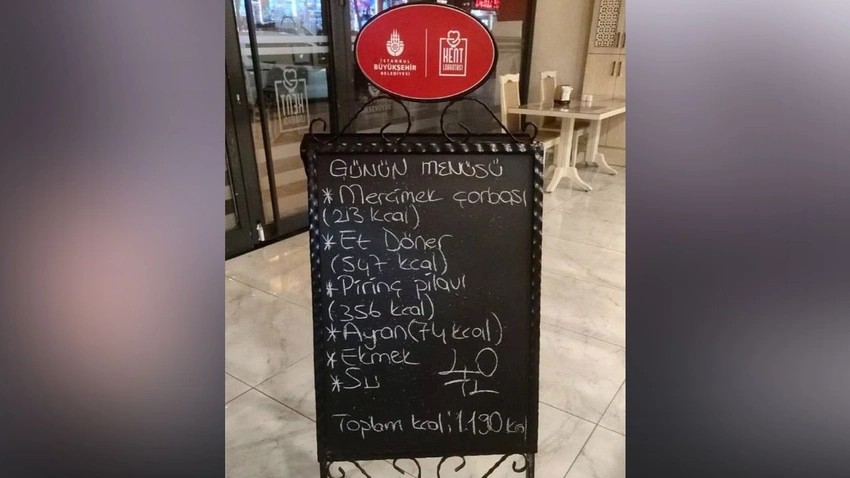 İSTANBUL
BÜYÜKŞEHİR
BELEDİYESİ
KENT
LOKANTASI
KENT
GÜNÜN MENÜSÜ
* Mercimek çorbası
(213 kcal)
* Et Döner
(547 kcal)
* Pirinç pilavı
(356 kcal)
* Ayran (74 kcal)
* Ekmek
* Su
40
TL
Toplam kcal: 1.190 kcal